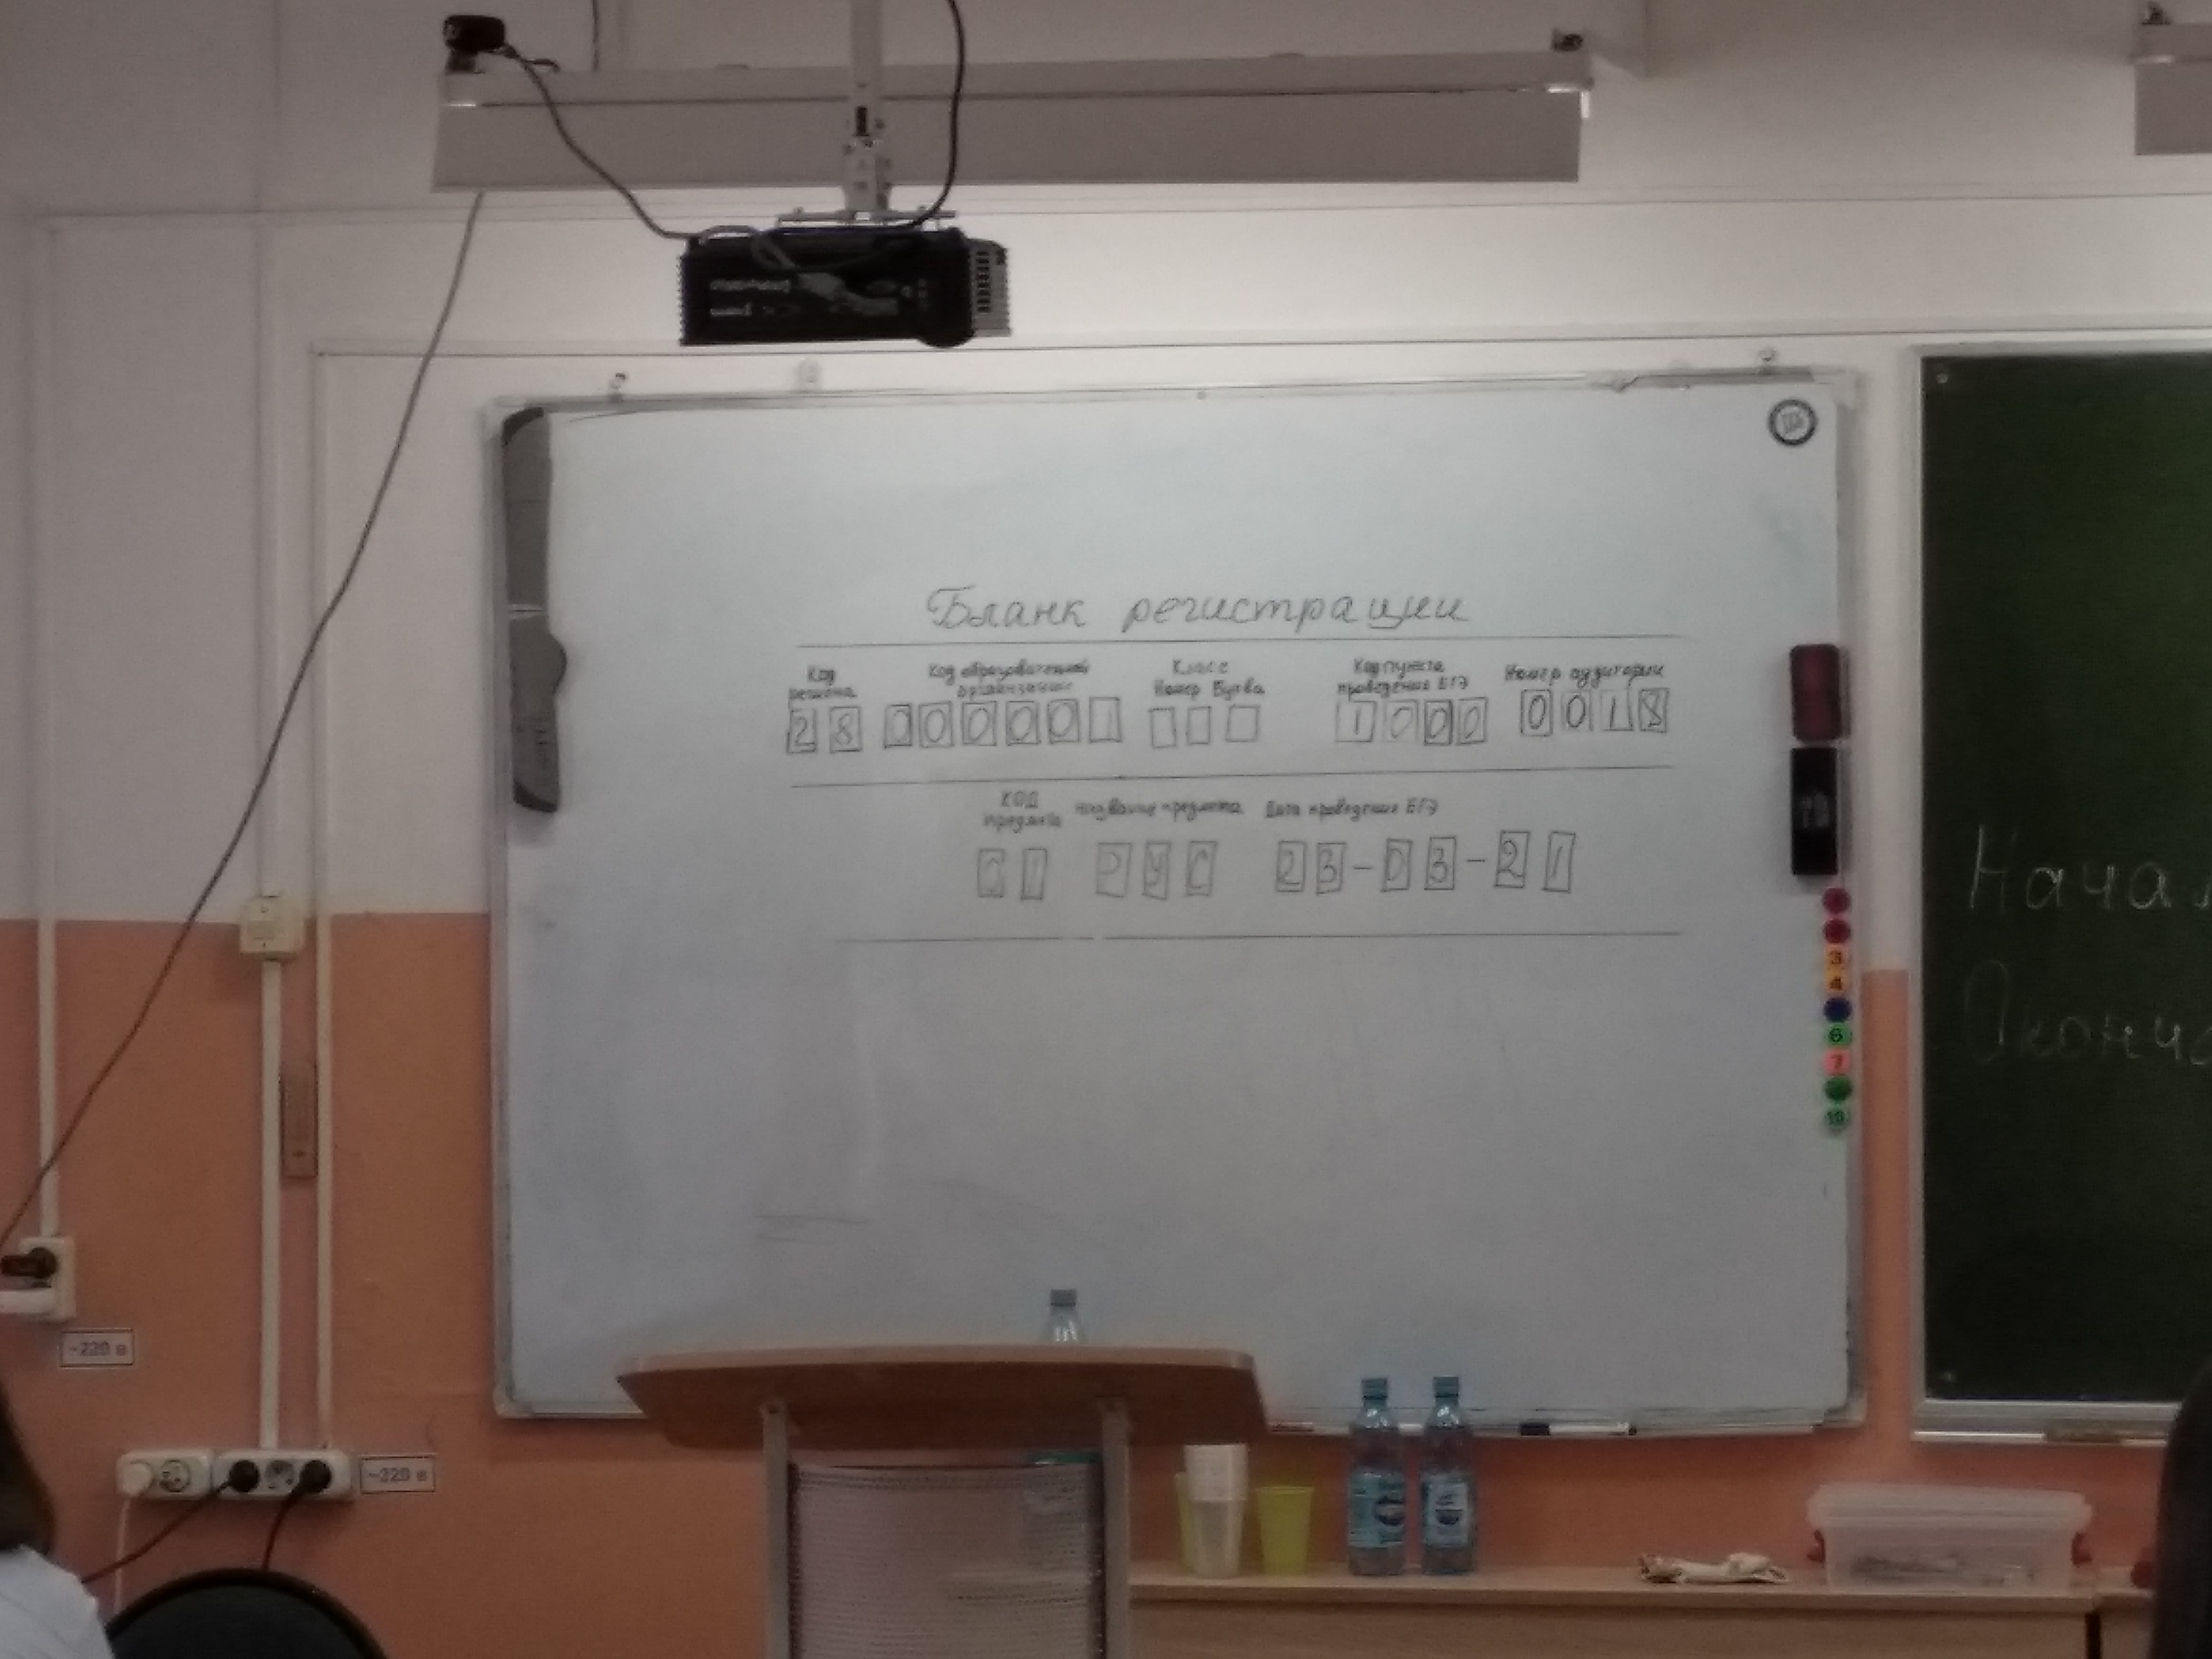 Бланк регистрации
Код региона
28
Код образовательной организации
000001
Класс
Номер Буква
Код пункта проведения ЕГЭ
1000
Номер аудитории
0018
КОД предмета
01
Название предмета
РУС
Дата проведения ЕГЭ
23-03-21
Нача
Оконча
3
4
6
7
10
~220 в
~220 в